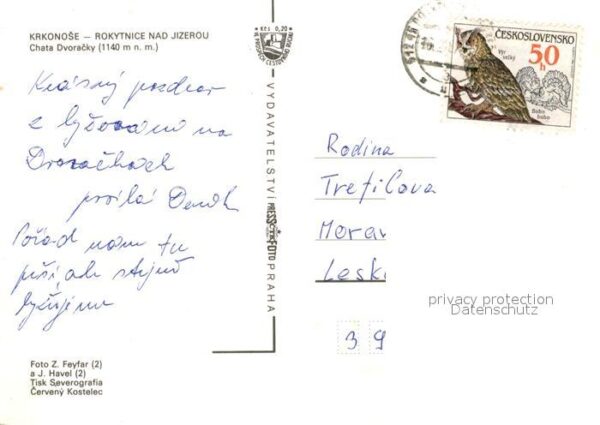 KRKONOŠE — ROKYTNICE NAD JIZEROU
Chata Dvoračky (1140 m n. m.)
Krásný pozdrav
z lyžování na
Dvoračkách
posílá
Pořád nám tu
prší, ale stejně
lyžujeme
Foto Z. Feyfar (2)
a J. Havel (2)
Tisk Severografia
Červený Kostelec
VYDAVATELSTVÍ PRESSFOTO PRAHA
Kčs 0,20
ČESKOSLOVENSKO
50 h
Výr
velký
Bubo
bubo
Rodina
Trefilova
Morav
Lesk
3 9
privacy protection
Datenschutz